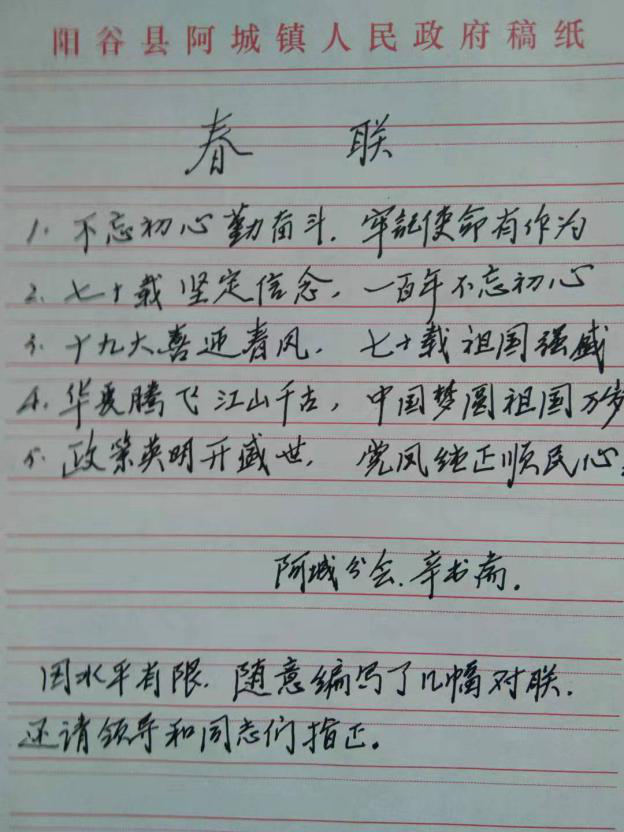 阳谷县阿城镇人民政府稿纸
春 联
1. 不忘初心勤奋斗. 牢記使命有作为
2. 七十载坚定信念, 一百年不忘初心
3. 十九大喜迎春风, 七十载祖国强盛
4. 华夏腾飞江山千古, 中国梦圆祖国万岁
5. 政策英明开盛世. 党风纯正顺民心.
阿城分会. 辛书斋.
因水平有限. 随意编写了几幅对联.
还请领导和同志们指正。